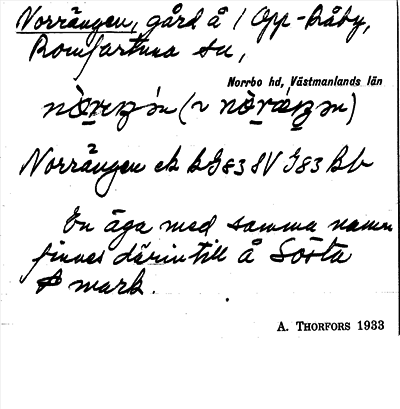 Norrängen, gård å 1 Opp-Råby,
Romfartuna sn,
Norrbo hd, Västmanlands län
Norrängen ek bG83 SV G83 Bb
En äga med samma namn
finnes därintill å Sösta
mark.
A. THORFORS 1933